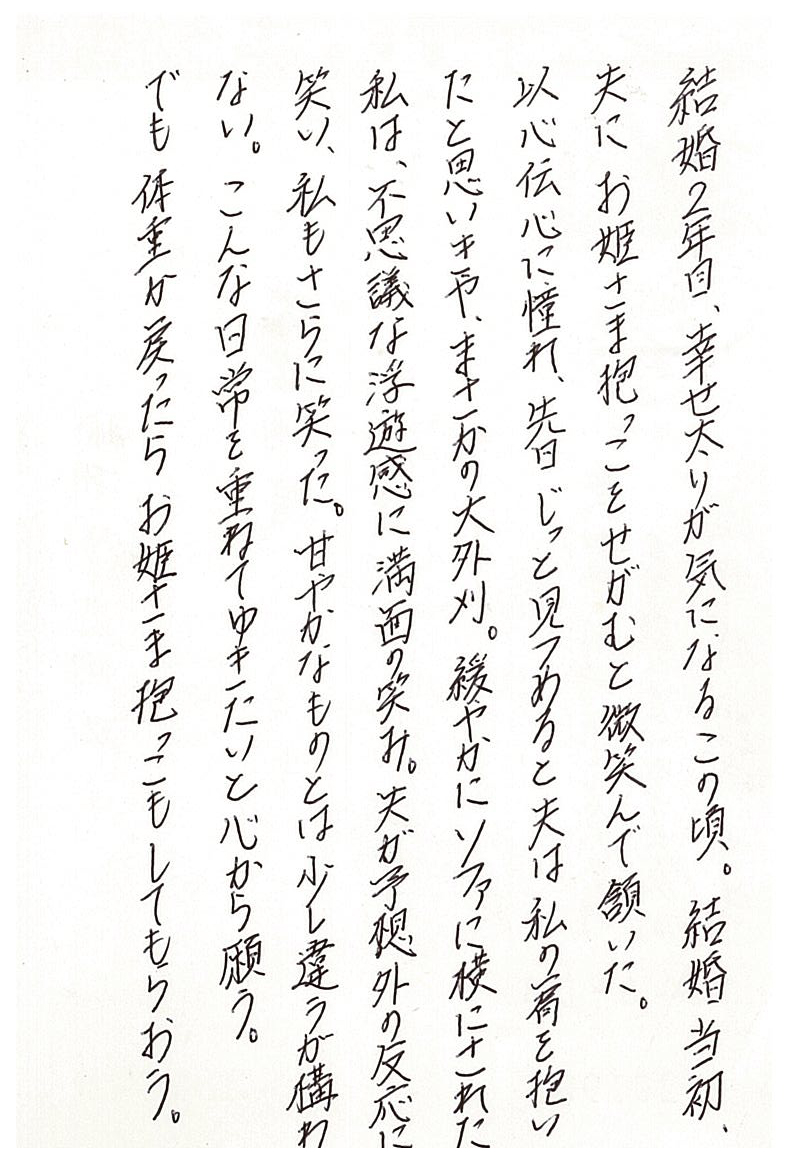 結婚２年目、幸せ太りが気になるこの頃。結婚当初、
夫にお姫さま抱っこをせがむと微笑んで頷いた。
以心伝心に憧れ、先日じっと見つめると夫は私の肩を抱い
たと思いきや、まさかの大外刈。緩やかにソファに横にされた
私は、不思議な浮遊感に満面の笑み。夫が予想外の反応に
笑い、私もさらに笑った。甘やかなものとは少し違うが構わ
ない。こんな日常を重ねてゆきたいと心から願う。
でも体重が戻ったらお姫さま抱っこもしてもらおう。